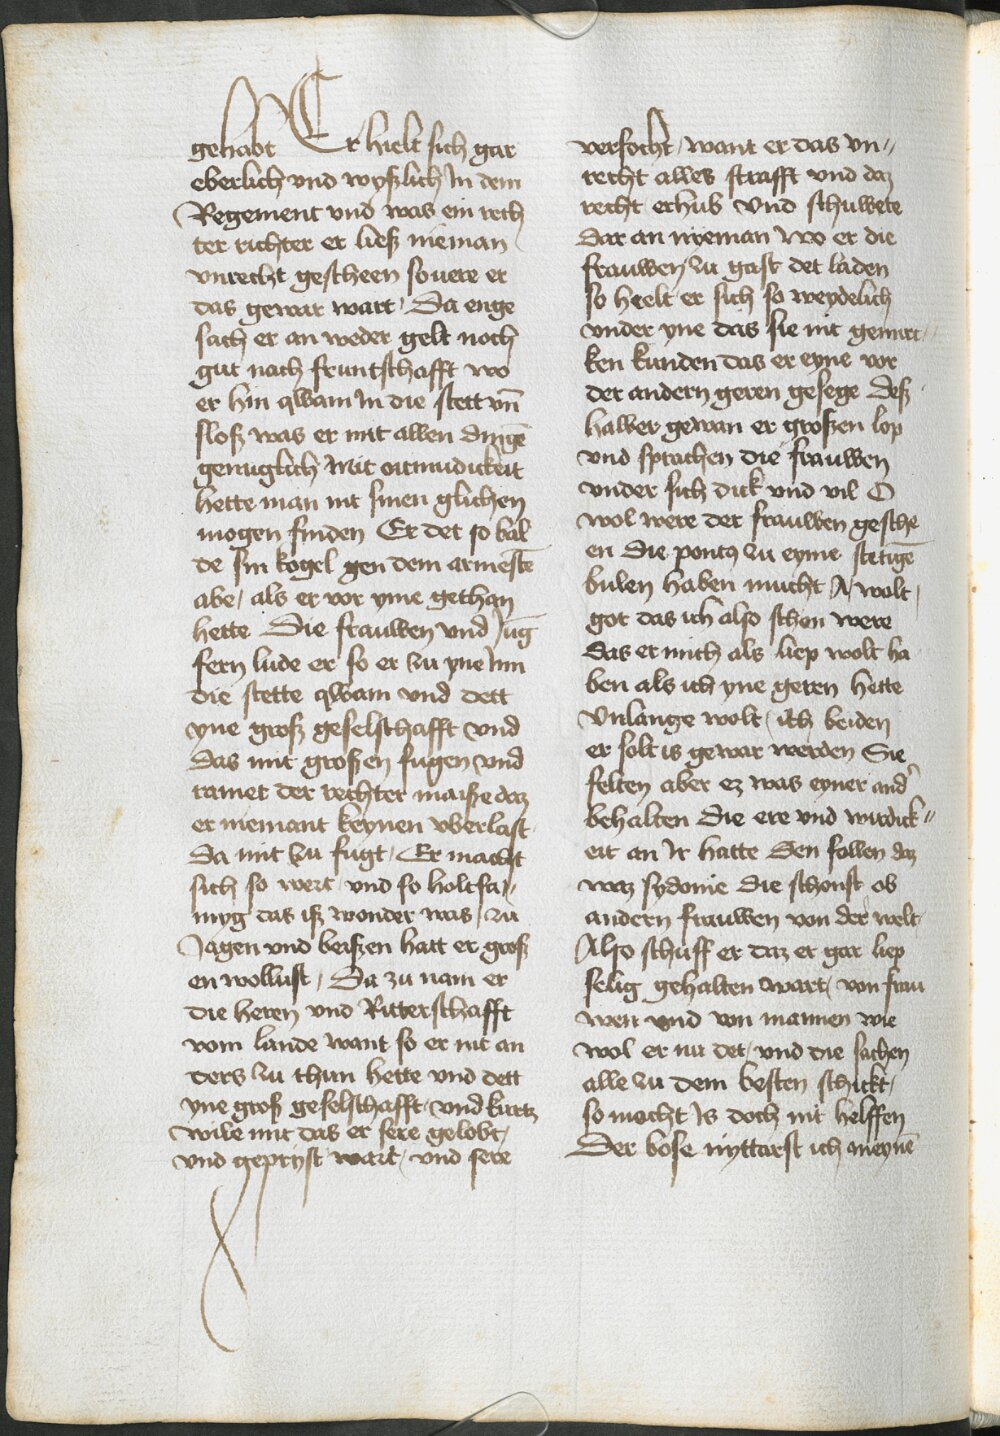 gehabt Er hielt sich gar
eberlich vnd wyßlich In dem
Regement vnd was ein rech
ter richter er ließ nieman
vnrecht gescheen souere er
das gewar wart / Da enge
sach er an weder gelt noch
gut nach fruntschafft wo
er hin qwam In die stett vn̄
sloß was er mit allen dingē
genuglich Mit oitmudickeit
hette man nit sinen glichen
mogen finden Er det so bal
de sin kogel gen dem armestē
abe / als er vor yme gethan
hette Die frauwen vnd Jūg
fern lude er so er zu yne Inn
die stette qwam vnd dett
yne groß geselschafft vnd
das mit großen fugen vnd
ramet der rechter maiße daz
er niemant keynen vberlast
Da mit zu fugt / Er macht
sich so wert vnd so holtsa//
myg das iß wonder was / zu
Jagen vnd beißen hatt er groß
en wollust / Da zu nam er
die heren vnd Ritterschafft
vom lande want so er nit an
ders zu thun hette vnd dett
yne groß geselschafft / vnd kurtz
wile mit das er sere gelobt /
vnd gepryst wart / vnd sere
versocht / want er das vn//
recht alles strafft vnd daz
recht erhub Vnd schuwete
dar an nyeman Wo er die
frauwen zu gast det laden
so heelt er sich so weydelich
vnder yne das sie nit gemirc//
ken kunden das er eyne vor
der andern geren gesege Deß
halber gewan er großen lop
vnd sprachen die frauwen
vnder sich dick vnd vil O
wol were der frauwen gesche
en Die pontus zu eyme stetigē
bulen haben mucht A wolt
got das ich also schon were
das er mich als liep wolt ha
ben als ich yne geren hette
Vnlange wolt ich beiden
er solt is gewar werden Sie
felten aber ez was eyner and'
behalten Die ere vnd wirdick//
eit an Ir hatte Den follen daz
waz sydonie die schonst ob
andern frauwen von der welt
Also schuff er daz er gar liep
selig gehalten wart / von frau
wen vnd von mannen wie
wol er nu det / vnd die sachen
alle zu dem besten schickt /
so mocht Is doch nit helffen
Der bose nyttarst ich meynē